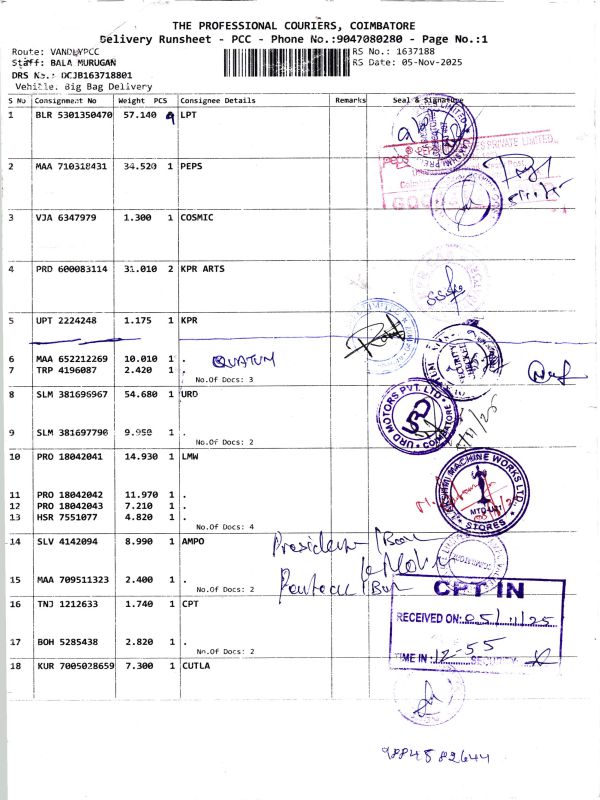 THE PROFESSIONAL COURIERS, COIMBATORE
Delivery Runsheet - PCC - Phone No.:9047080280 - Page No.:1
Route: VANDLYPCC
RS No.: 1637188
Staff: BALA MURUGAN
RS Date: 05-Nov-2025
DRS No.: DCJB163718801
Vehicle. Big Bag Delivery
S No Consignment No Weight PCS Consignee Details Remarks Seal & Signature
1 BLR 5301350470 57.140 LPT
2 MAA 710318431 34.520 1 PEPS
3 VJA 6347979 1.300 1 COSMIC
4 PRD 600083114 31.010 2 KPR ARTS
5 UPT 2224248 1.175 1 KPR
6 MAA 652212269 10.010 1 . QUATUM
7 TRP 4196087 2.420 1 .
No.Of Docs: 3
8 SLM 381696967 54.680 1 URD
URD MOTORS PVT. LTD. COIMBATORE
9 SLM 381697790 9.950 1 .
No.Of Docs: 2
10 PRO 18042041 14.930 1 LMW
LAKSHMI MACHINE WORKS LTD. STORES
11 PRO 18042042 11.970 1 .
12 PRO 18042043 7.210 1 .
13 HSR 7551077 4.820 1 .
No.Of Docs: 4
14 SLV 4142094 8.990 1 AMPO
15 MAA 709511323 2.400 1 .
No.Of Docs: 2
16 TNJ 1212633 1.740 1 CPT
CPT IN
RECEIVED ON: 05/11/25
17 BOH 5285438 2.820 1 .
No.Of Docs: 2
TIME IN: 12-55 SECURITY
18 KUR 7005028659 7.300 1 CUTLA
9884582644